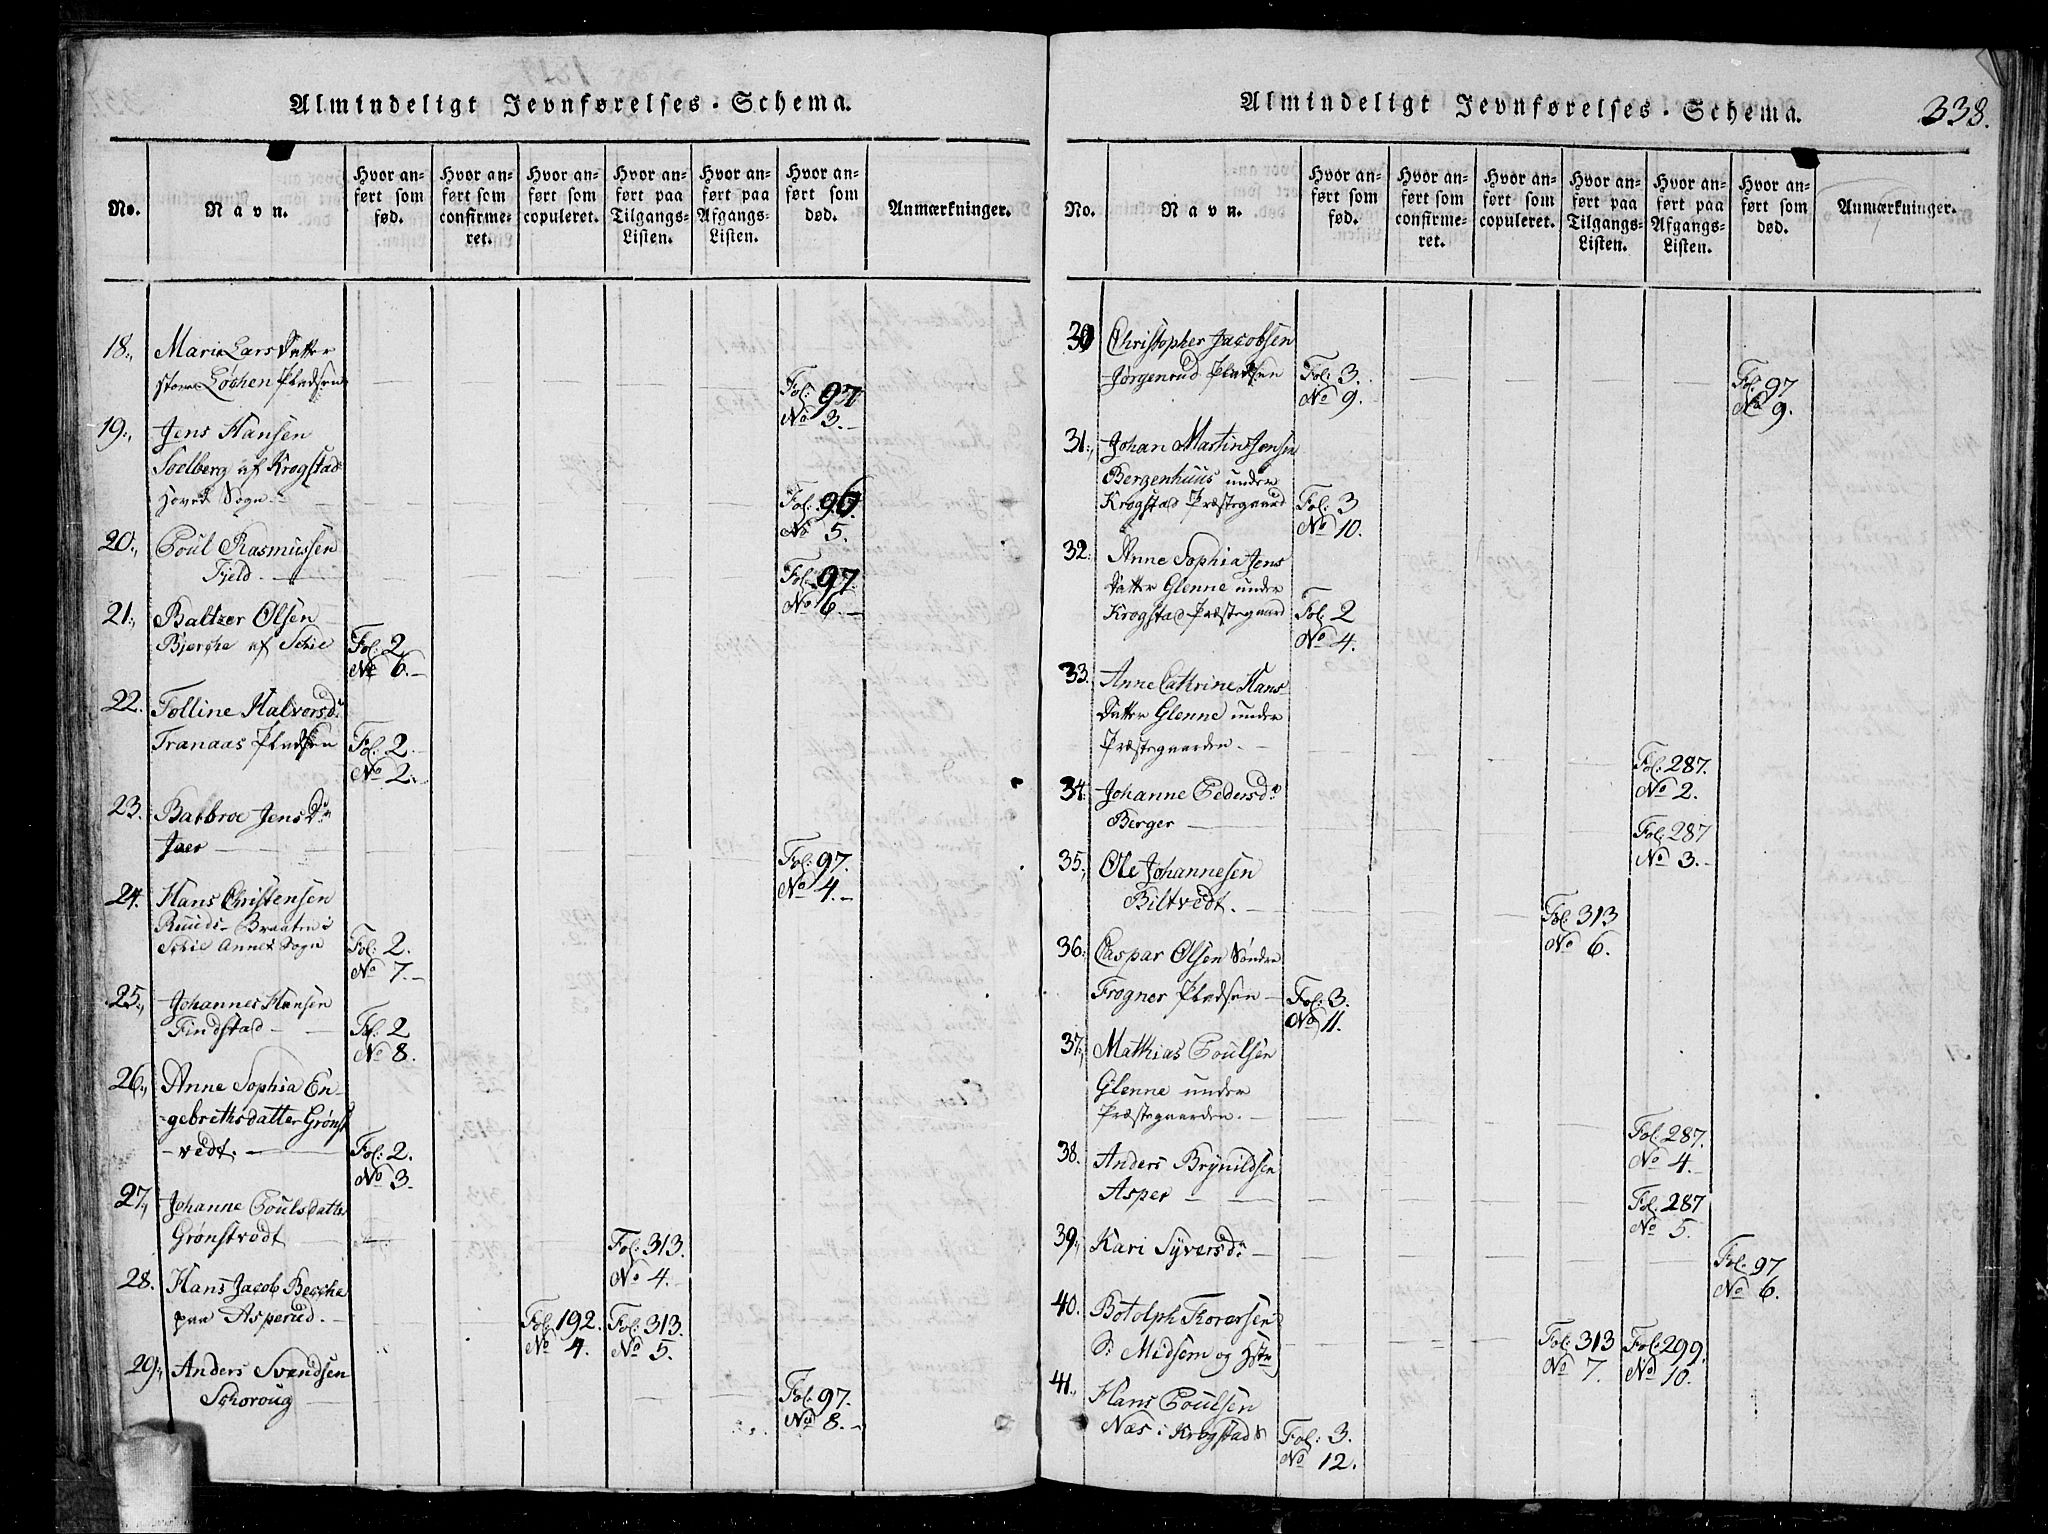 Almindeligt Jevnførelses-Schema.
No.
Navn.
Hvor an-
ført som
fød.
Hvor an-
ført som
confirme-
ret.
Hvor an-
ført som
copuleret.
Hvor an-
ført paa
Tilgangs-
Listen.
Hvor an-
ført paa
Afgangs-
Listen.
Hvor an-
ført som
død.
Anmærkninger.
18., Marie Lars Datter
store Løchen Pladsen
Fol: 97
No 3.
19., Jens Hansen
Soelberg af Krogstad
hoved Sogn.
Fol: 96.
No 5.
20., Poul Rasmussen
Fjeld.
Fol: 97.
No 6.
21., Baltzer Olsen
Bjerche af Schie
Fol: 2
No 6.
22. Tolline Halvorsdr
Tranaas Pladsen
Fol: 2.
No 2.
23. Barbroe Jens Dr
Jaer
Fol: 97.
No 4.
24. Hans Christensen
Ruuds-Braaten i
Schie Annex Sogn
Fol: 2.
No 7.
25., Johannes Hansen
Findstad
Fol: 2
No 8.
26., Anne Sophia En-
gebrethsdatter Grønst
vedt.
Fol: 2.
No 3.
27., Johanne Poulsdatter
Grønstvedt
Fol: 313.
No 4.
28. Hans Jacob Becche
paa Asperud.
Fol: 192.
No 4.
Fol: 313.
No 5.
29., Anders Svendsen
Schoroug
Fol: 97.
No 8.
Almindeligt Jevnførelses-Schema.
338.
No.
Navn.
Hvor an-
ført som
fød.
Hvor an-
ført som
confirme-
ret.
Hvor an-
ført som
copuleret.
Hvor an-
ført paa
Tilgangs-
Listen.
Hvor an-
ført paa
Afgangs-
Listen.
Hvor an-
ført som
død.
Anmærkninger.
30 Christopher Jacobsen
Jørgenrud Pladsen
Fol: 3.
No 9.
Fol: 97
No 9.
31., Johan Martin Jensen
Bergenhuus under
Krogstad Præstegaard
Fol: 3
No 10.
32. Anne Sophia Jens
Datter Glenne under
Krogstad Præstegaard
Fol: 2
No 4.
33. Anne Cathrine Hans
Datter Glenne under
Præstegaarden.
Fol: 287.
No 2.
34. Johanne Pedersdr
Berger
Fol: 287
No 3.
35., Ole Johannesen
Biltvedt.
Fol: 313
No 6.
36. Caspar Olsen Søndre
Frogner Pladsen
Fol: 3.
No 11.
37., Mathias Poulsen
Glenne under
Præstegaarden.
Fol: 287.
No 4.
38. Anders Brynildsen
Asper
Fol: 287
No 5.
39., Kari Syversdr
Fol: 97
No 6.
40. Botolph Torersen
S: Midsem og Hstr
Fol: 313
No 7.
Fol: 299.
No 10.
41., Hans Poulsen
Næs i Krogstad S
Fol: 3.
No 12.